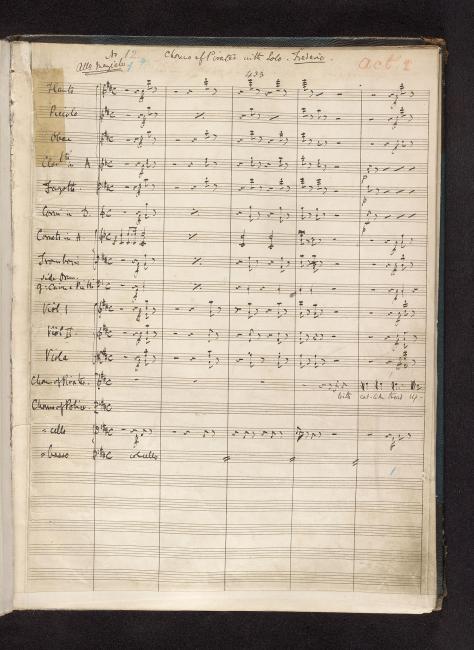 No. 12 Chorus of Pirates with Solo - Frederic.
Act 2
Allo Marziale
433
Flauto
Piccolo
Oboe
Clartti in A
Fagotti
Corni in D.
Cornets in A
Tromboni
Side Drum
Viol I
Viol II
Viola
Chorus of Pirates.
With cat-like tread Up-
Chorus of Police.
cello
basso col cello